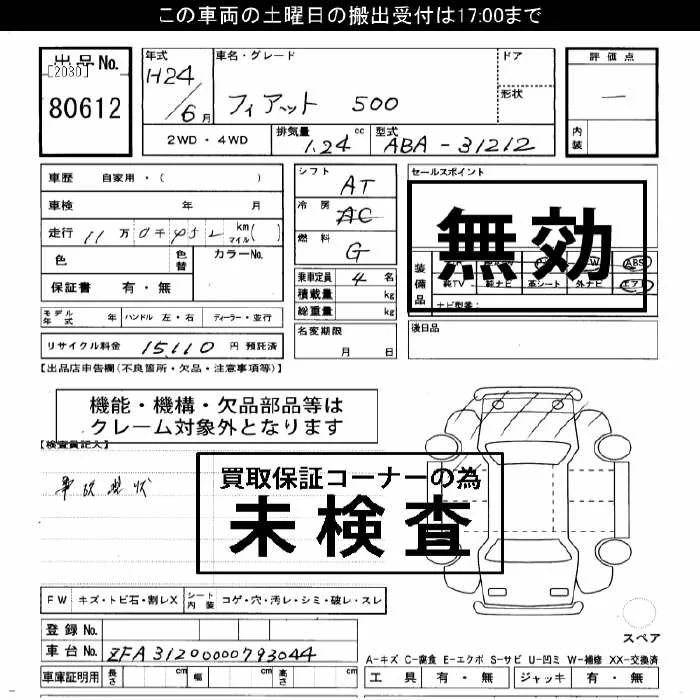 この車両の土曜日の搬出受付は17:00まで
出品No.
[2030]
80612
年式
H24/6月
車名・グレード
フィアット 500
ドア
形状
評価点
—
内装
2WD・4WD
排気量 1.24 cc
型式 ABA-31212
車歴 自家用・( )
車検 年 月
走行 11万0千452 km マイル( )
色 色替 カラーNo.
保証書 有・無
シフト AT
冷房 AC
燃料 G
乗車定員 4 名
積載量 kg
総重量 kg
セールスポイント
無効
装備品
ABS
純TV 純ナビ 革シート 外ナビ エア
ナビ型番:
モデル年式 年 ハンドル 左・右 ディーラー・並行
名変期限 月 日
後日品
リサイクル料金 15,110 円 預託済
【出品店申告欄(不良箇所・欠品・注意事項等)】
機能・機構・欠品部品等は
クレーム対象外となります
【検査員記入】
事故現状
買取保証コーナーの為
未検査
FW キズ・トビ石・割レX シート内装 コゲ・穴・汚レ・シミ・破レ・スレ
登録No.
車台No. ZFA31200000793044
車庫証明用 長さ cm 幅 cm 高さ cm
スペア
A-キズ C-腐食 E-エクボ S-サビ U-凹ミ W-補修 XX-交換済
工具 有・無 ジャッキ 有・無